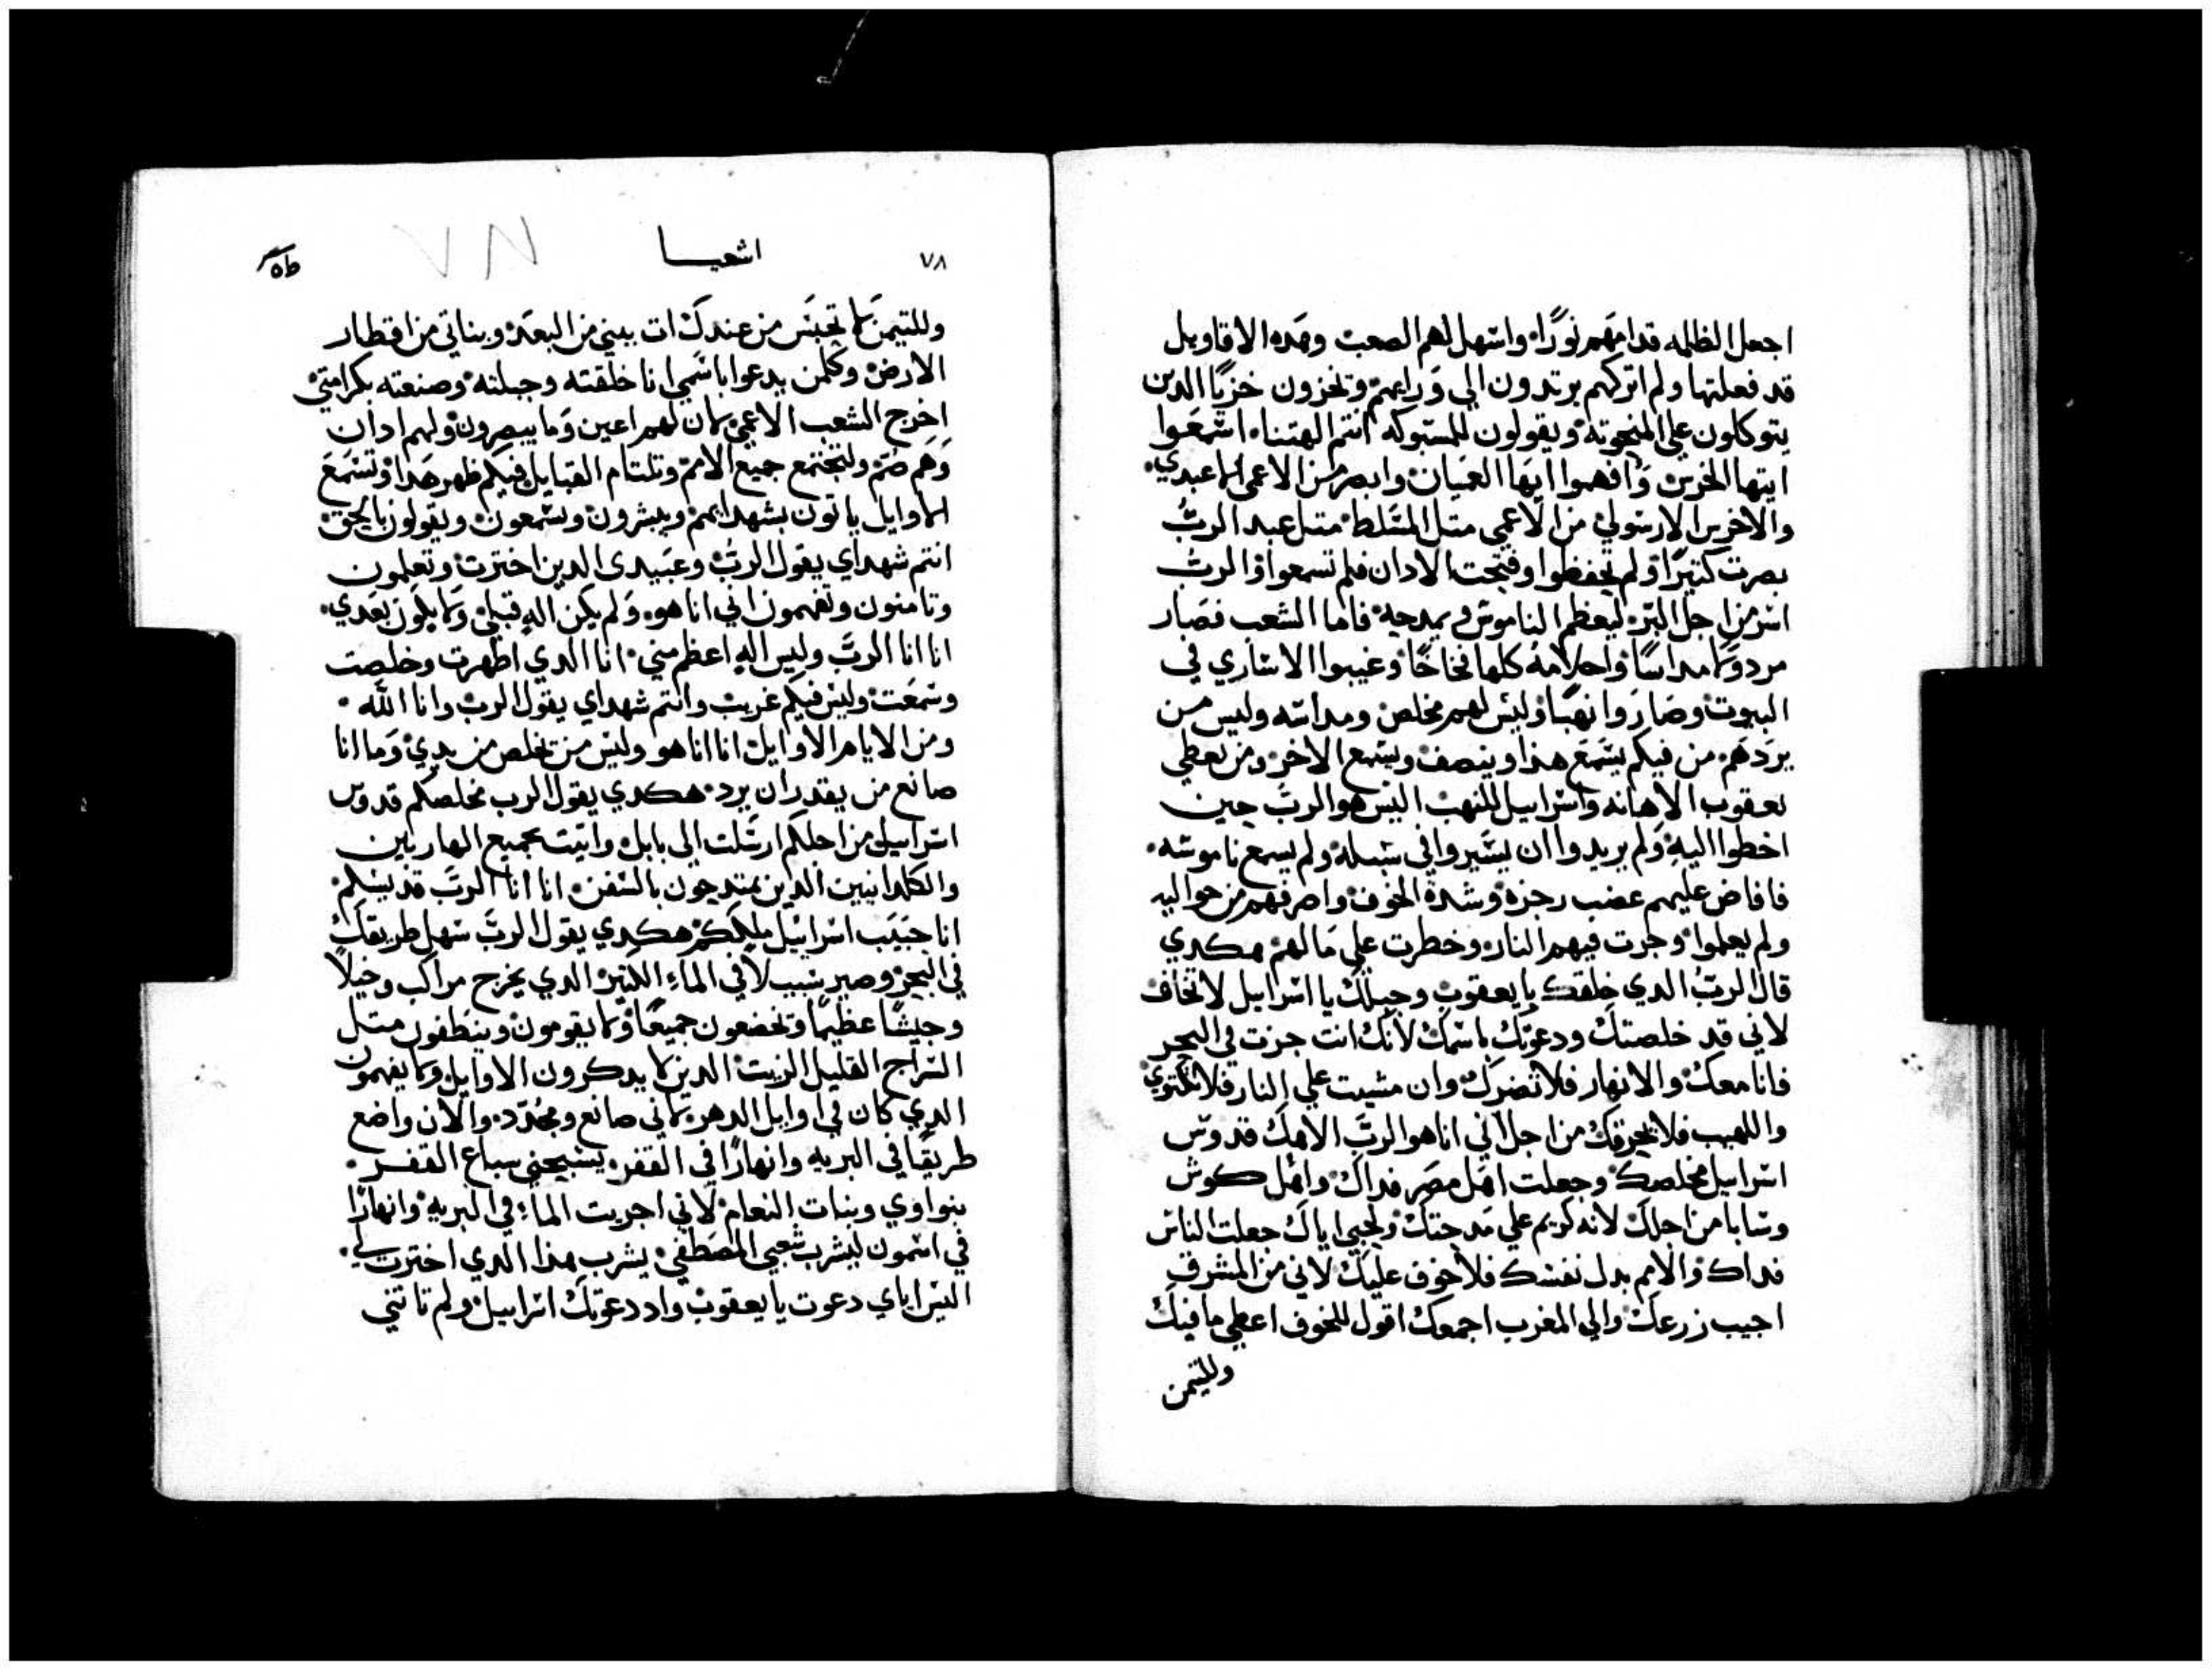 اجعل الظلمه قدامهم نورًا واسهل لهم الصعب وهده الاقاويل
قد فعلتها ولم اتركهم يرتدون الي ورايهم وتخزون خزيًا الدين
يتوكلون علي المنحوته ويقولون للمسبوكه انتم الهتنا اسمعوا
ايتها الخرس وافهموا ايها العميان وابصر من الاعمى الا عبدي
والاخرس الا رسولي من الاعمي متل المسلط متل عبد الرب
بصرت كتيرًا ولم تحفظوا وفتحت الادان فلم تسمعوا والرب
اسر من اجل البر ليعظم الناموس ويمدحه فاما الشعب فصار
مردولا مداسًا واحلامه كلها فخاخًا وغيبوا الاساري في
البيوت وصاروا نهبًا وليس لهم مخلص ومداسه وليس من
يردهم من فيكم يسمع هذا وينصف ويسمع الاخر ومن يعطي
يعقوب الاهانه واسراييل للنهب اليس هو الرب حين
اخطوا اليه ولم يريدوا ان يسيروا في سبله ولم يسمع ناموسه
فافاض عليهم غضب رجزه وشدة الخوف واصرفهم من حواليه
ولم يعلموا وجرت فيهم النار وخطرت علي مالهم هكدي
قال الرب الدي خلقك يا يعقوب وجبلك يا اسراييل لا تخاف
لاني قد خلصتك ودعوتك باسمك لانك انت جزت في البحر
فانا معك والانهار فلا تضرك وان مشيت علي النار فلا تكتوي
واللهيب فلا يحرقك من اجل اني انا هو الرب الاهك قدوس
اسراييل مخلصك وجعلت اهل مصر فداك واهل كوش
وسابا من اجلك لانه كريم علي مدحتك ولحبي اياك جعلت الناس
فداك والامم بدل نفسك فلا خوف عليك لاني من المشرق
اجيب زرعك والي المغرب اجمعك اقول للخوف اعطي ما فيك
ولليتمن
٧٨
اشعيا
٧٨
ولليتمن لا تحبس من عندك ات ببني من البعد وبناتي من اقطار
الارض وكلمن يدعوا باسمي انا خلقته وجبلته وصنعته بكرامتي
اخرج الشعب الاعمي لان لهم اعين وما يبصرون ولهم ادان
وهم صم ولتجتمع جميع الامم وتلتام القبايل فيكم ظهر هدا وتسمع
الاوايل ياتون بشهدايهم ويبشرون ويسمعون ويقولون بالحق
انتم شهداي يقول الرب وعبيدى الدين اخترت وتعلمون
وتامنون وتفهمون اني انا هو ولم يكن اله قبلي ولا يكون بعدي
انا انا الرب وليس اله اعظم مني انا الدي اظهرت وخلصت
وسمعت وليس فيكم غريب وانتم شهداي يقول الرب وانا الله
ومن الايام الاوايل انا انا هو وليس من تخلص من يدي وما انا
صانع من يقدر ان يرد هكدي يقول الرب مخلصكم قدوس
اسراييل من اجلكم ارسلت الي بابل واتيت بجميع الهاربين
والكلدانيين الدين يمتدحون بالسفن انا انا الرب قديسكم
انا حبيب اسراييل مليككم هكدي يقول الرب سهل طريقك
في البحر وصير سبيلاً في الماء الكتير الدي يخرج مراكب وخيلاً
وجيشًا عظيمًا وتخضعون جميعًا ولا يقومون وينطفون متل
السراج القليل الزيت الدين لا يدكرون الاوايل ولا يفهمون
الدي كان في اوايل الدهر لاني صانع ومجدد والان واضع
طريقًا في البريه وانهارًا في القفر يسبحني سباع القفر
بنواوي وبنات النعام لاني اجريت الماء في البريه وانهارًا
في اشمون ليشرب شعبي المصطفي يشرب هذا الدي اخترت لي
اليس اياي دعوت يا يعقوب واد دعوتك اسراييل ولم تاتني